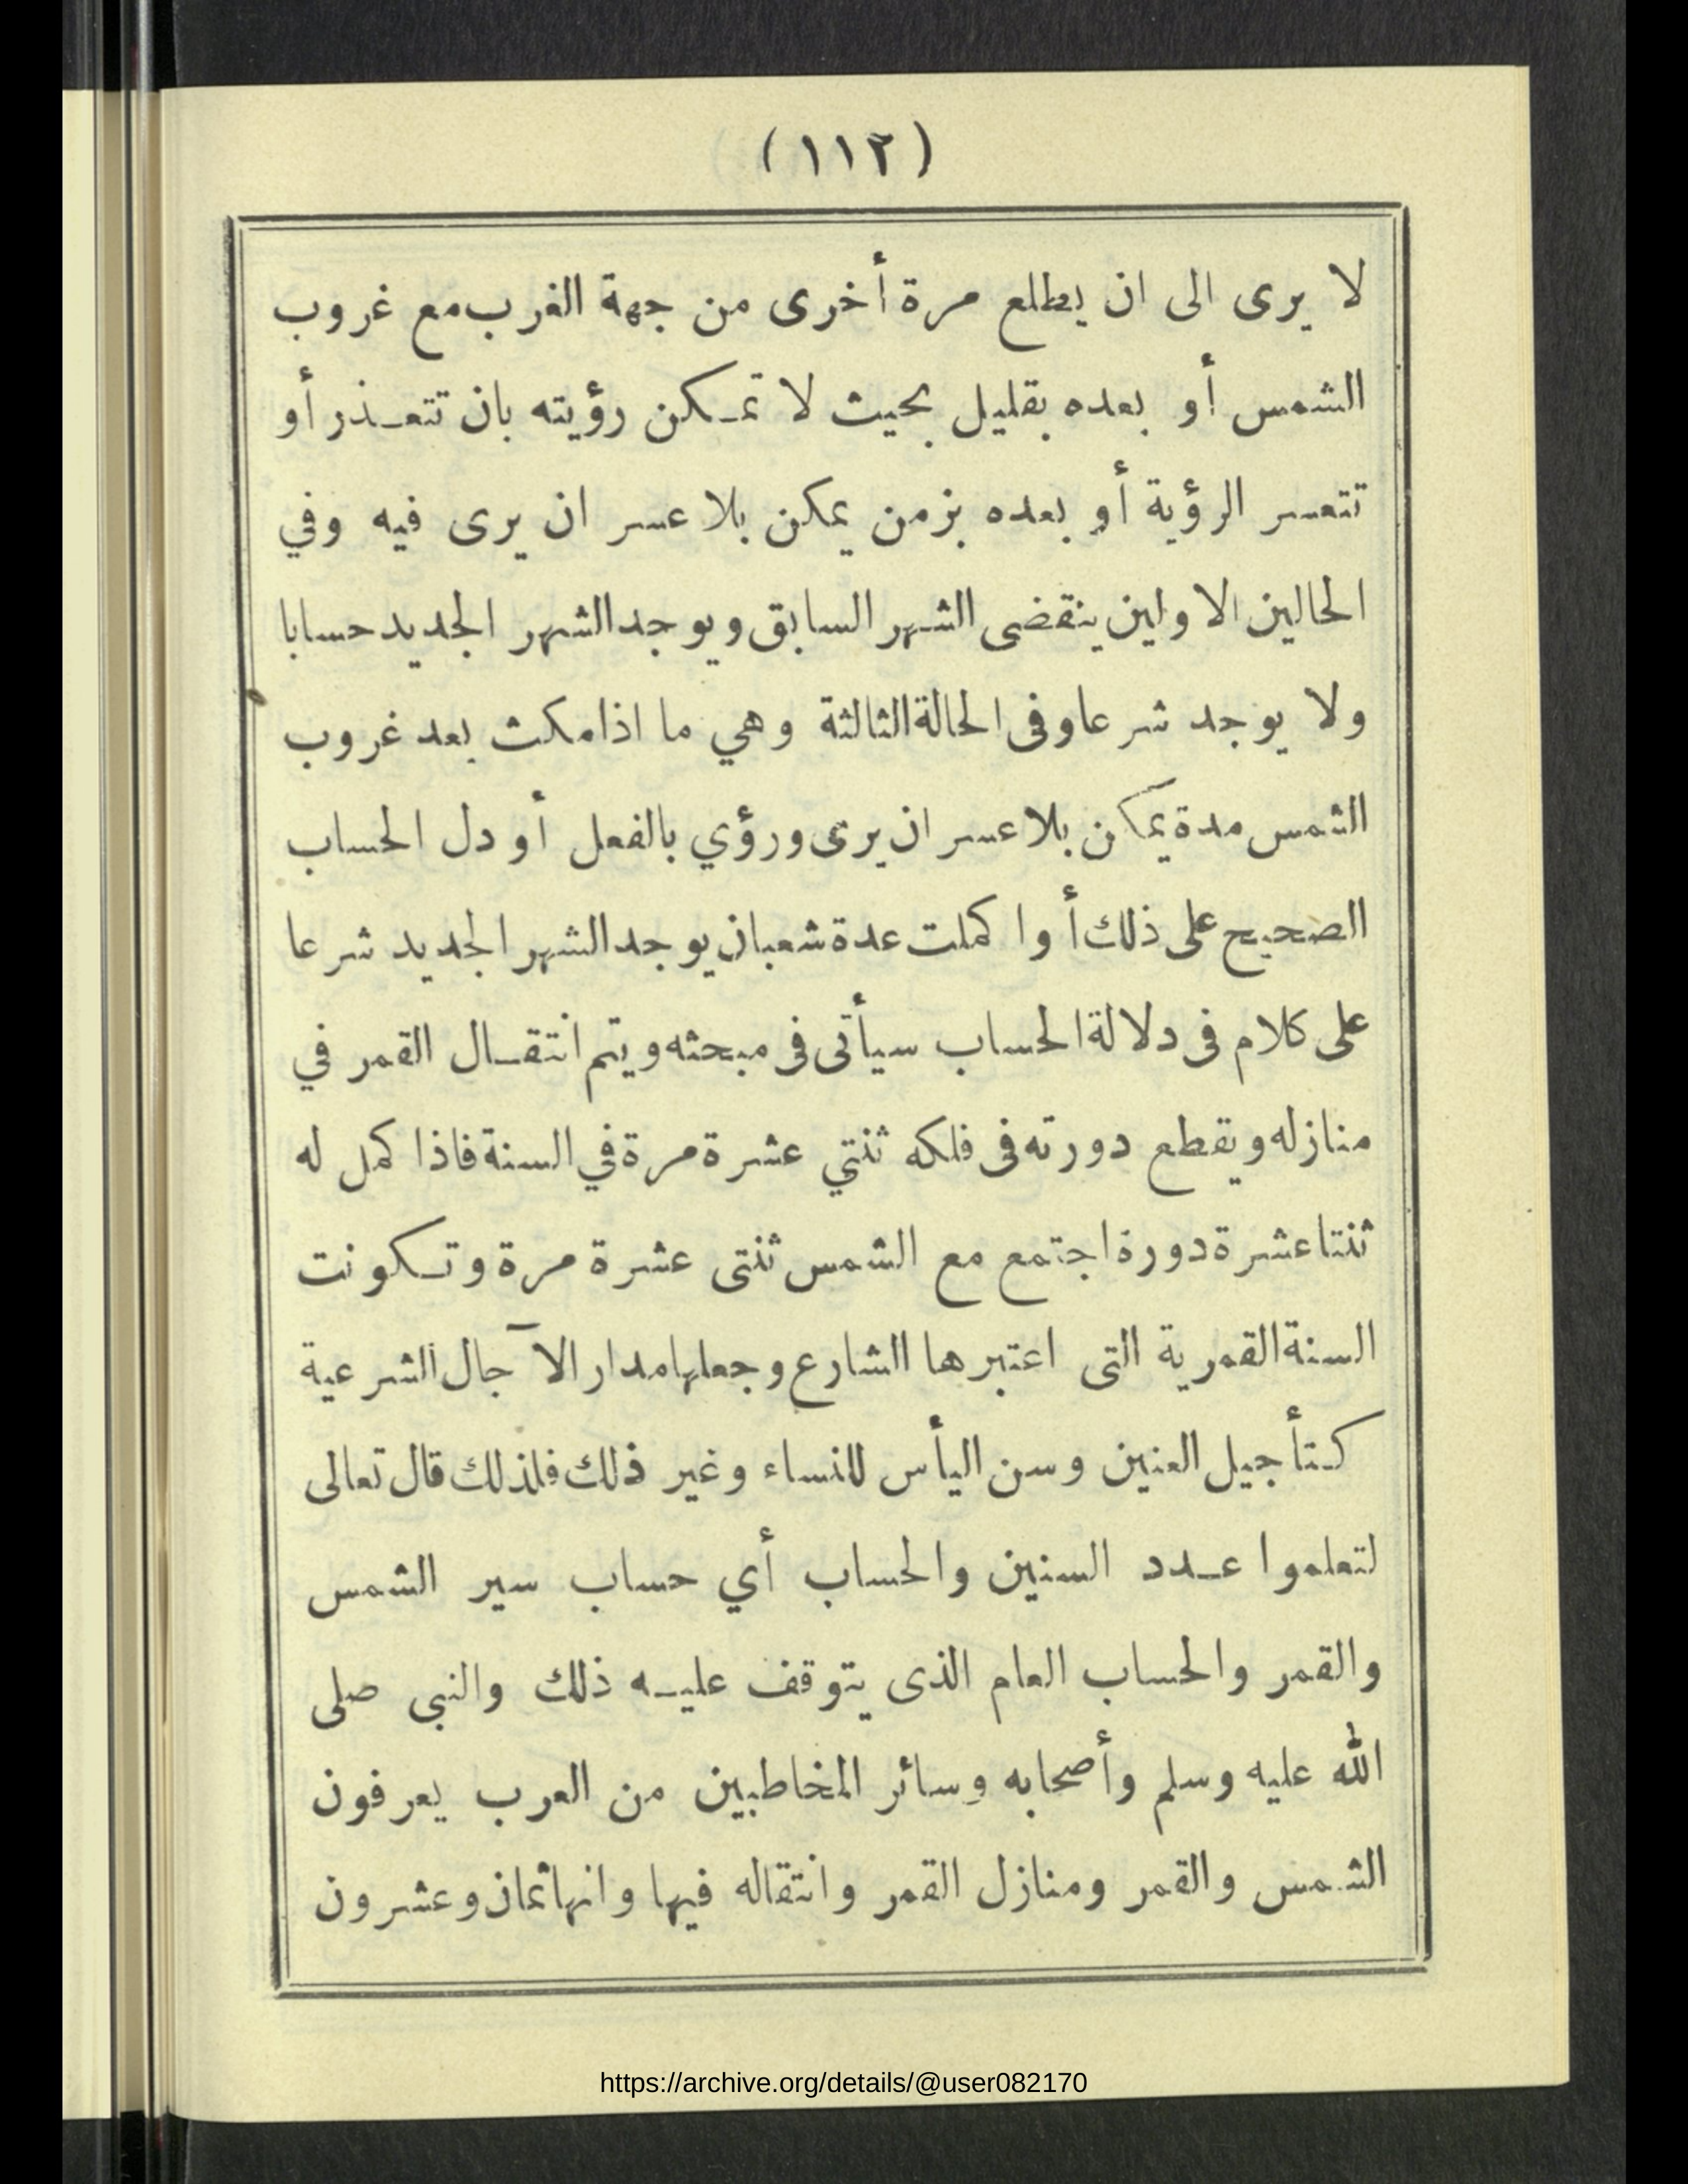 (١١٢)
لا يرى الى ان يطلع مرة أخرى من جهة الغرب مع غروب
الشمس أو بعده بقليل بحيث لا تمكن رؤيته بان تتعذر أو
تتعسر الرؤية أو بعده بزمن يمكن بلا عسر ان يرى فيه وفي
الحالين الاولين ينقضى الشهر السابق ويوجد الشهر الجديد حسابا
ولا يوجد شرعا وفى الحالة الثالثة وهي ما اذا مكث بعد غروب
الشمس مدة يمكن بلا عسر ان يرى ورؤي بالفعل أو دل الحساب
الصحيح على ذلك أو اكملت عدة شعبان يوجد الشهر الجديد شرعا
على كلام فى دلالة الحساب سيأتى فى مبحثه ويتم انتقال القمر في
منازله ويقطع دورته فى فلكه ثنتي عشرة مرة في السنة فاذا كمل له
ثنتا عشرة دورة اجتمع مع الشمس ثنتى عشرة مرة وتكونت
السنة القمرية التى اعتبرها الشارع وجعلها مدار الآجال الشرعية
كتأجيل العنين وسن اليأس للنساء وغير ذلك فلذلك قال تعالى
لتعلموا عدد السنين والحساب أي حساب سير الشمس
والقمر والحساب العام الذى يتوقف عليه ذلك والنبى صلى
الله عليه وسلم وأصحابه وسائر المخاطبين من العرب يعرفون
الشمس والقمر ومنازل القمر وانتقاله فيها وانها ثمان وعشرون
https://archive.org/details/@user082170